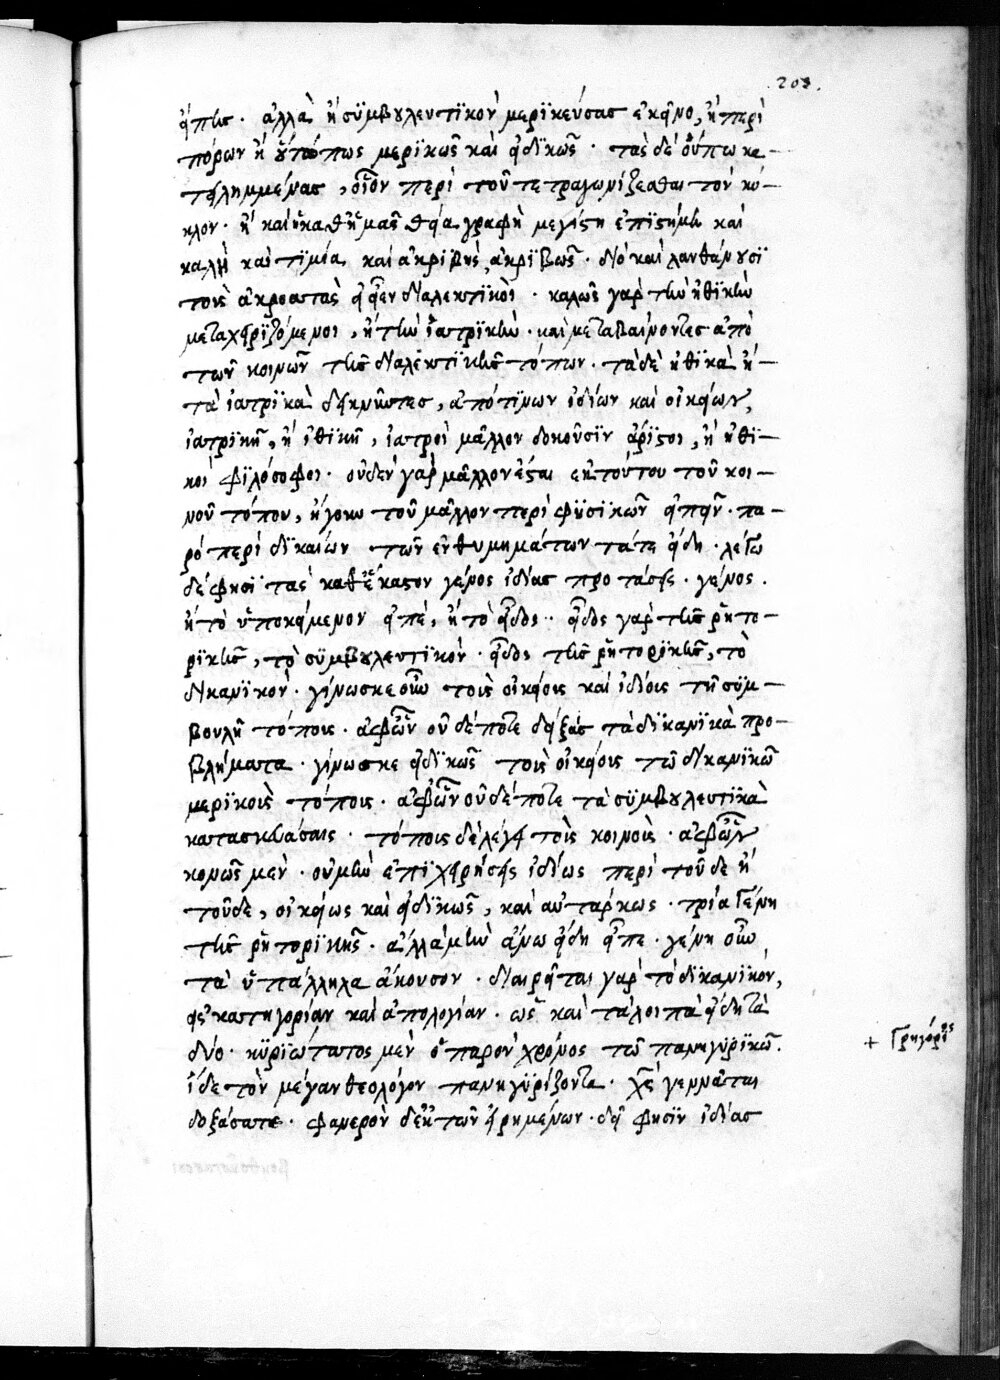 203.
εἴπης. ἀλλὰ ἢ συμβουλευτικὸν μερικεύσας ἐκεῖνο, ἢ περὶ
πόρων ἢ οὕτως πως μερικῶς καὶ εἰδικῶς. τὰς δὲ οὔπω κα-
τειλημμένας, οἷον περὶ τοῦ τετραγωνίζεσθαι τὸν κύ-
κλον. ἢ καὶ ἡ καθ' ἡμᾶς θεία γραφὴ μεγίστη ἐπιστήμη καὶ
καλὴ καὶ τιμία καὶ ἀκριβὴς ἀκριβῶς. διὸ καὶ λανθάνουσι
τοὺς ἀκροατὰς διαλεκτικοὶ. καλῶς γὰρ τὴν ἠθικὴν
μεταχειριζόμενοι, ἢ τὴν ἰατρικὴν. καὶ μεταβαίνοντες ἀπὸ
τῶν κοινῶν τῆς διαλεκτικῆς τόπων. τὰ δὲ ἠθικὰ ἢ
τὰ ἰατρικὰ δεικνῦντες, ἀπό τινων ἰδίων καὶ οἰκείων,
ἰατρικῆ, ἢ ἠθικῆ, ἰατροὶ μᾶλλον δοκοῦσιν ἄριστοι, ἢ ἠθι-
κοὶ φιλόσοφοι. οὐδὲν γὰρ μᾶλλον ἔσται ἐκ τούτου τοῦ κοι-
νοῦ τόπου, ἤγουν τοῦ μᾶλλον περὶ φυσικῶν εἰπεῖν. πα-
ρὸ περὶ δικαίων τῶν ἐνθυμημάτων τά τε εἴδη. λέγω
δέ φησι τὰς καθ' ἕκαστον γένος ἰδίας προτάσεις. γένος.
ἢ τὸ ὑποκείμενον εἰπὲ, ἢ τὸ εἶδος. εἶδος γὰρ τῆς ῥητο-
ρικῆς, τὸ συμβουλευτικὸν. εἶδος τῆς ῥητορικῆς, τὸ
δικανικὸν. γίνωσκε οὖν τοῖς οἰκείοις καὶ ἰδίοις τῆ συμ-
βουλῆ τόποις. ἀφ' ὧν οὐδέποτε δείξεις τὰ δικανικὰ προ-
βλήματα. γίνωσκε εἰδικῶς τοῖς οἰκείοις τῶ δικανικῶ
μερικοῖς τόποις. ἀφ' ὧν οὐδέποτε τὰ συμβουλευτικὰ
κατασκευάσεις. τόποις δὲ λέγει τοῖς κοινοῖς. ἀφ' ὧν
κοινῶς μὲν. οὐ μὴν ἐπιχειρήσεις ἰδίως περὶ τοῦδε ἢ
τοῦδε, οἰκείως καὶ εἰδικῶς, καὶ αὐτάρκως. τρία γένη
τῆς ῥητορικῆς. ἀλλὰ μὴν ἄνω εἴδη εἶπε. γένη οὖν
τὰ ὑπάλληλα ἄκουσον. διαιρεῖται γὰρ τὸ δικανικὸν,
εἰς κατηγορίαν καὶ ἀπολογίαν. ὡς καὶ τὰ λοιπὰ εἴδη τὰ
δύο. κυριώτατος μὲν ὁ παρὼν χρόνος τῶ πανηγυρικῶ.
ἴδε τὸν μέγαν θεολόγον πανηγυρίζοντα. χς γεννᾶται
δοξάσατε. φανερὸν δὲ ἐκ τῶν εἰρημένων. δεῖ φησιν ἰδίας
+ Γρηγόριος